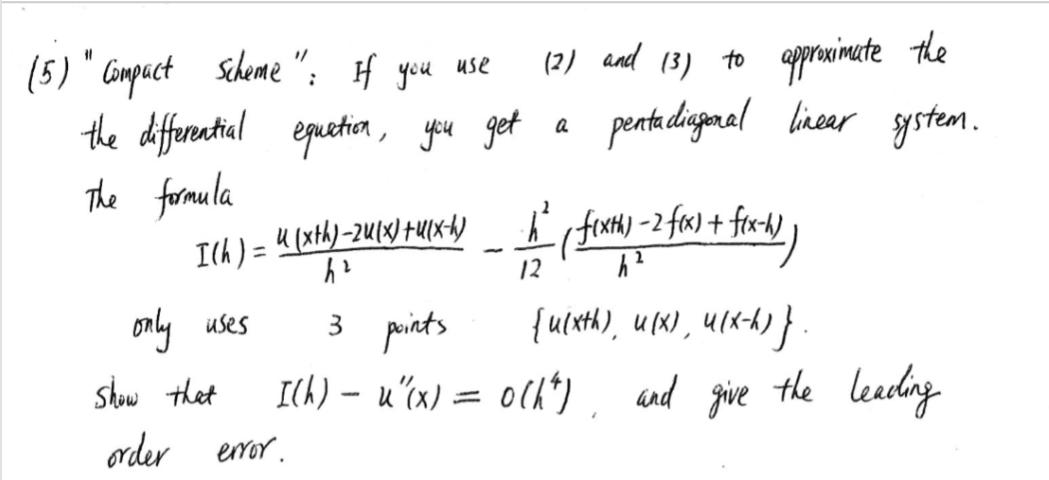 (5) "Compact Scheme": If you use (2) and (3) to approximate the
the differential equation, you get a pentadiagonal linear system.
The formula
I(h) = \frac{u(x+h)-2u(x)+u(x-h)}{h^2} - \frac{h^2}{12} ( \frac{f(x+h)-2f(x)+f(x-h)}{h^2} )
only uses 3 points {u(x+h), u(x), u(x-h)}.
show that I(h) - u''(x) = O(h^4), and give the leading
order error.